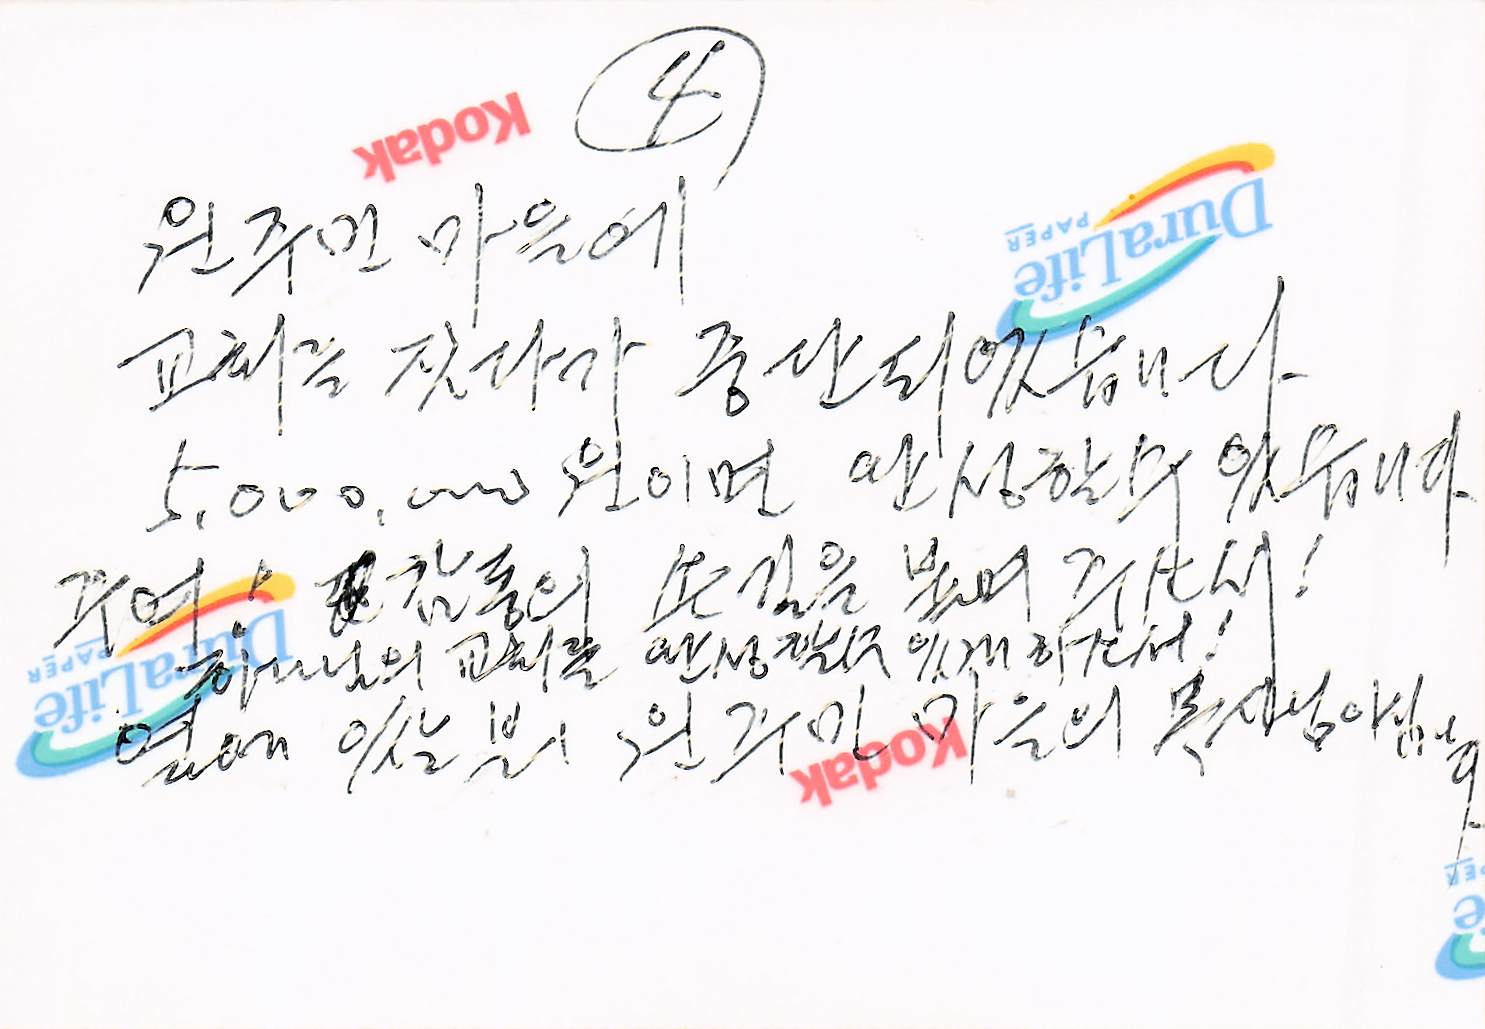 ④
Kodak
DuraLife
PAPER
원주민 마을에
교회를 짓다가 중단되었습니다
5,000,000원이면 완성할수 있습니다
주여! 감동의 손길을 보내 주소서!
하나님의 교회를 완성할수 있게 하소서!
DuraLife
PAPER
옆에 있는 분이 원주민 마을의 목사님이십니다
Kodak